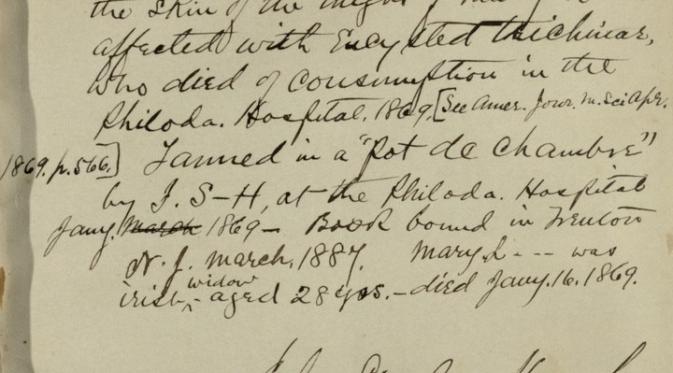 the skin of the thigh of
affected with Encysted trichinae,
who died of consumption in the
Philada. Hospital, 1869, [See Amer. Jour. M. Sci Apr.
1869. p. 566.] Tanned in a "Pot de Chambre"
by J. S-H, at the Philada. Hospital
Jany. March 1869 - Book bound in Trenton
N. J. march, 1887. Mary L - - - was
widow
irish, - aged 28 yrs. - died Jany. 16, 1869.